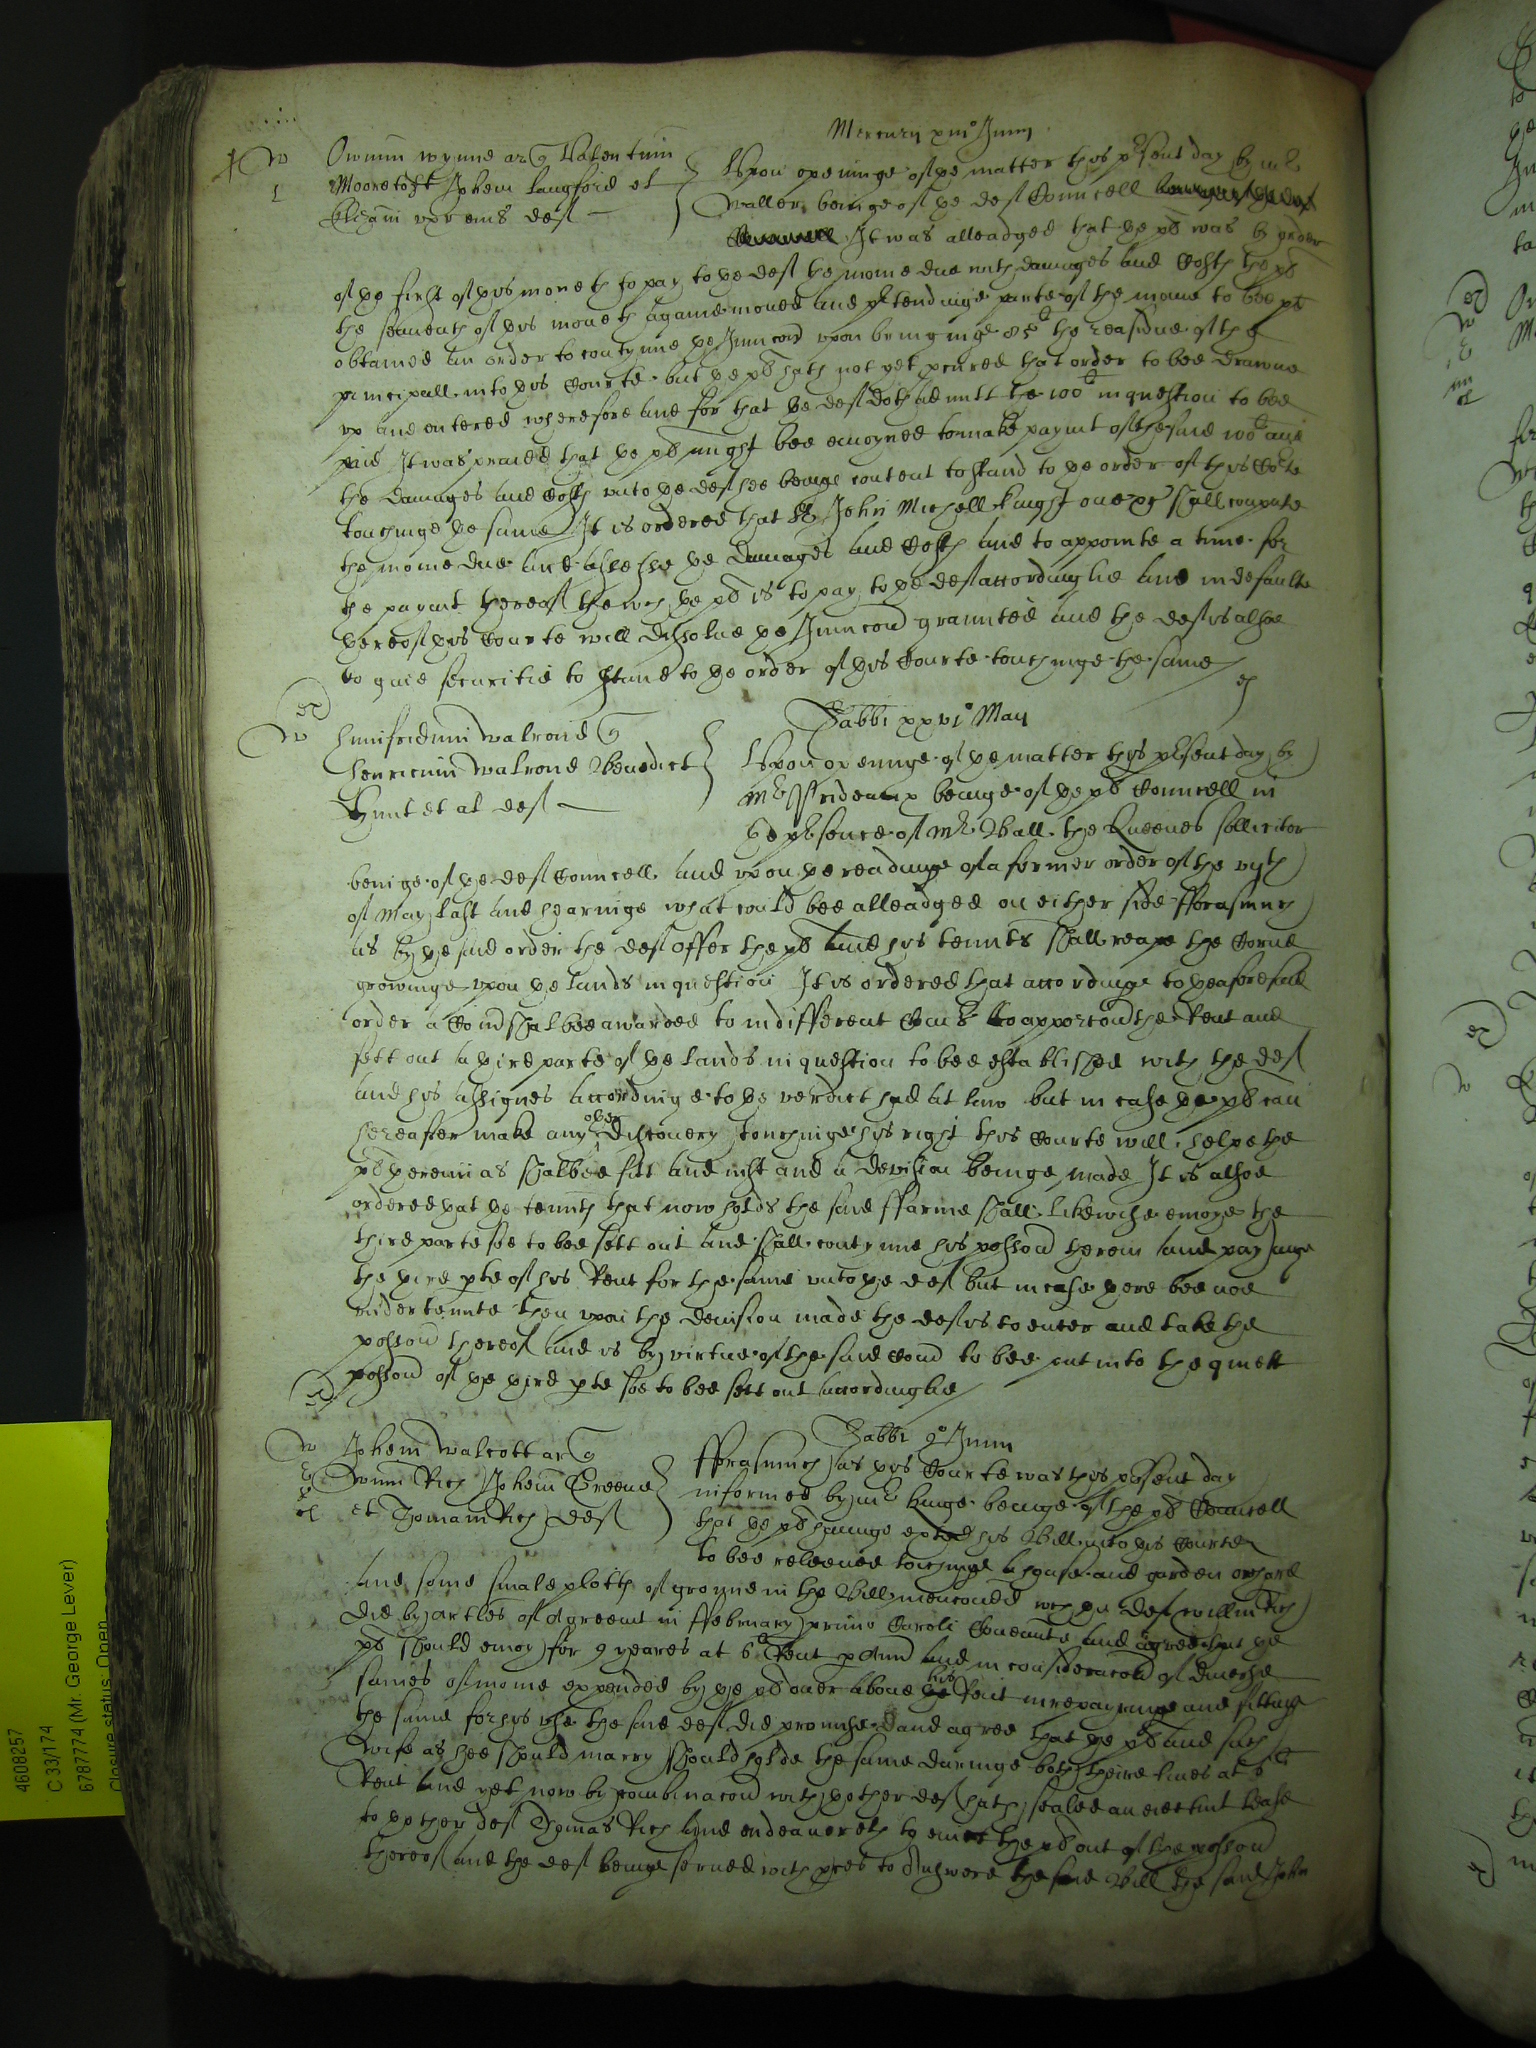 Mercurij xiii° Junij
Owinum Wynne ar q Valentinum
Mooretoft Johem Langford et
Elizam uxorem eius deft
Upon openinge of ye matter this pnt day by Mr
Waller beinge of ye deft Councell
It was alleadged that ye plt was by order
of ye first of this moneth to pay to ye deft the monie due with damages and Costs the plt
the seaventh of this moneth againe moved and ptendinge parte of the monie to bee pd
obtained an order to contynue ye Iniunccon upon bringinge 85l the reasidue of the
principall into this Courte but ye plt hath not yet pcured that order to bee drawne
up and entered wherefore and for that ye deft doth admitt the 100l in question to bee
paid It was praied that ye plt might bee enioyned to make paymt of the said 100l and
the damages and Costs unto ye deft hee beinge content to stand to ye order of this Courte
touchinge ye same It is ordered that Sr John Michell knight one &c shall compute
the monie due and assesse ye damages and Costs and to appointe a time for
the paymt thereof the wch ye plt is to pay to ye deft accordinglie and in defaulte
thereof this Courte will dissolve ye Iniunccon graunted and the deft is alsoe
to give securitie to stand to ye order of this Courte touchinge the same
Sabbi xxvi° Maij
Humfridum Walrond q
Henricum Walrond Benedict
Hunt et al deft
Upon openinge of ye matter this psent day by
Mr Prideaux beinge of ye plt Councell in
ye psence of Mr Ball the Queenes solliciter
beinge of ye deft Councell and upon ye readinge of a former order of the vijth
of May last and hearinge what could bee alleadged on either side fforasmuch
as by ye said order the deft offer the plt and his tennts shall reape the Corne
growinge upon ye lands in question It is ordered that accordinge to ye aforesaid
order a Comd shalbee awarded to indifferent Comrs to apporcon the Rent and
sett out a third parte of ye lands in question to bee established with the deft
and his assignes accordinge to ye verdict had at law but in case ye plt can
hereafter make any other discovery touchinge his right this Courte will helpe the
plt therein as shalbee fitt and iust and a devision beinge made It is alsoe
ordered that ye tennts that now holds the said ffarme shall likewise enioye the
third parte soe to bee sett out and shall contynue his possion therein and payinge
the third pte of his Rent for the same unto ye deft but in case there bee noe
undertennte then upon the devision made the deft is to enter and take the
possion thereof and is by virtue of the said Comd to bee put into the quiett
possion of ye third pte soe to bee sett out accordinglie
Sabbi 9° Junij
Johem Walcott ar q
Rich Johem Greene
et Thomam Rich deft
fforasmuch as this Courte was this psent day
informed by Mr Kinge beinge of the plt Councell
that ye plt havinge exhited his Bill into this Courte
to bee releeved touchinge a house and garden orchard
and some smale plotts of ground in the Bill menconed wch ye deft Willm Rich
did by artles of Agreemt in ffebruary primo Caroli Covennte and agree that ye
plt should enioy for 9 yeares at 6l Rent p Ann and in consideracon of diverse
sumes of monie expended by ye plt over above his Rent in repayringe and fittinge
the same for his use the said deft did promise and agree that ye plt and such
wife as hee should marry should holde the same duringe both theire lives at 6l
Rent and yet now by combinacon with thother deft hath sealed an eiectmt lease
to thother deft Thomas Rich and endeavoreth to eiect the plt out of the possion
thereof and the deft beinge served with pces to Answere the said Bill the said John
4608257
C 33/174
6787774 (Mr. George Lever)
Closure status: Open